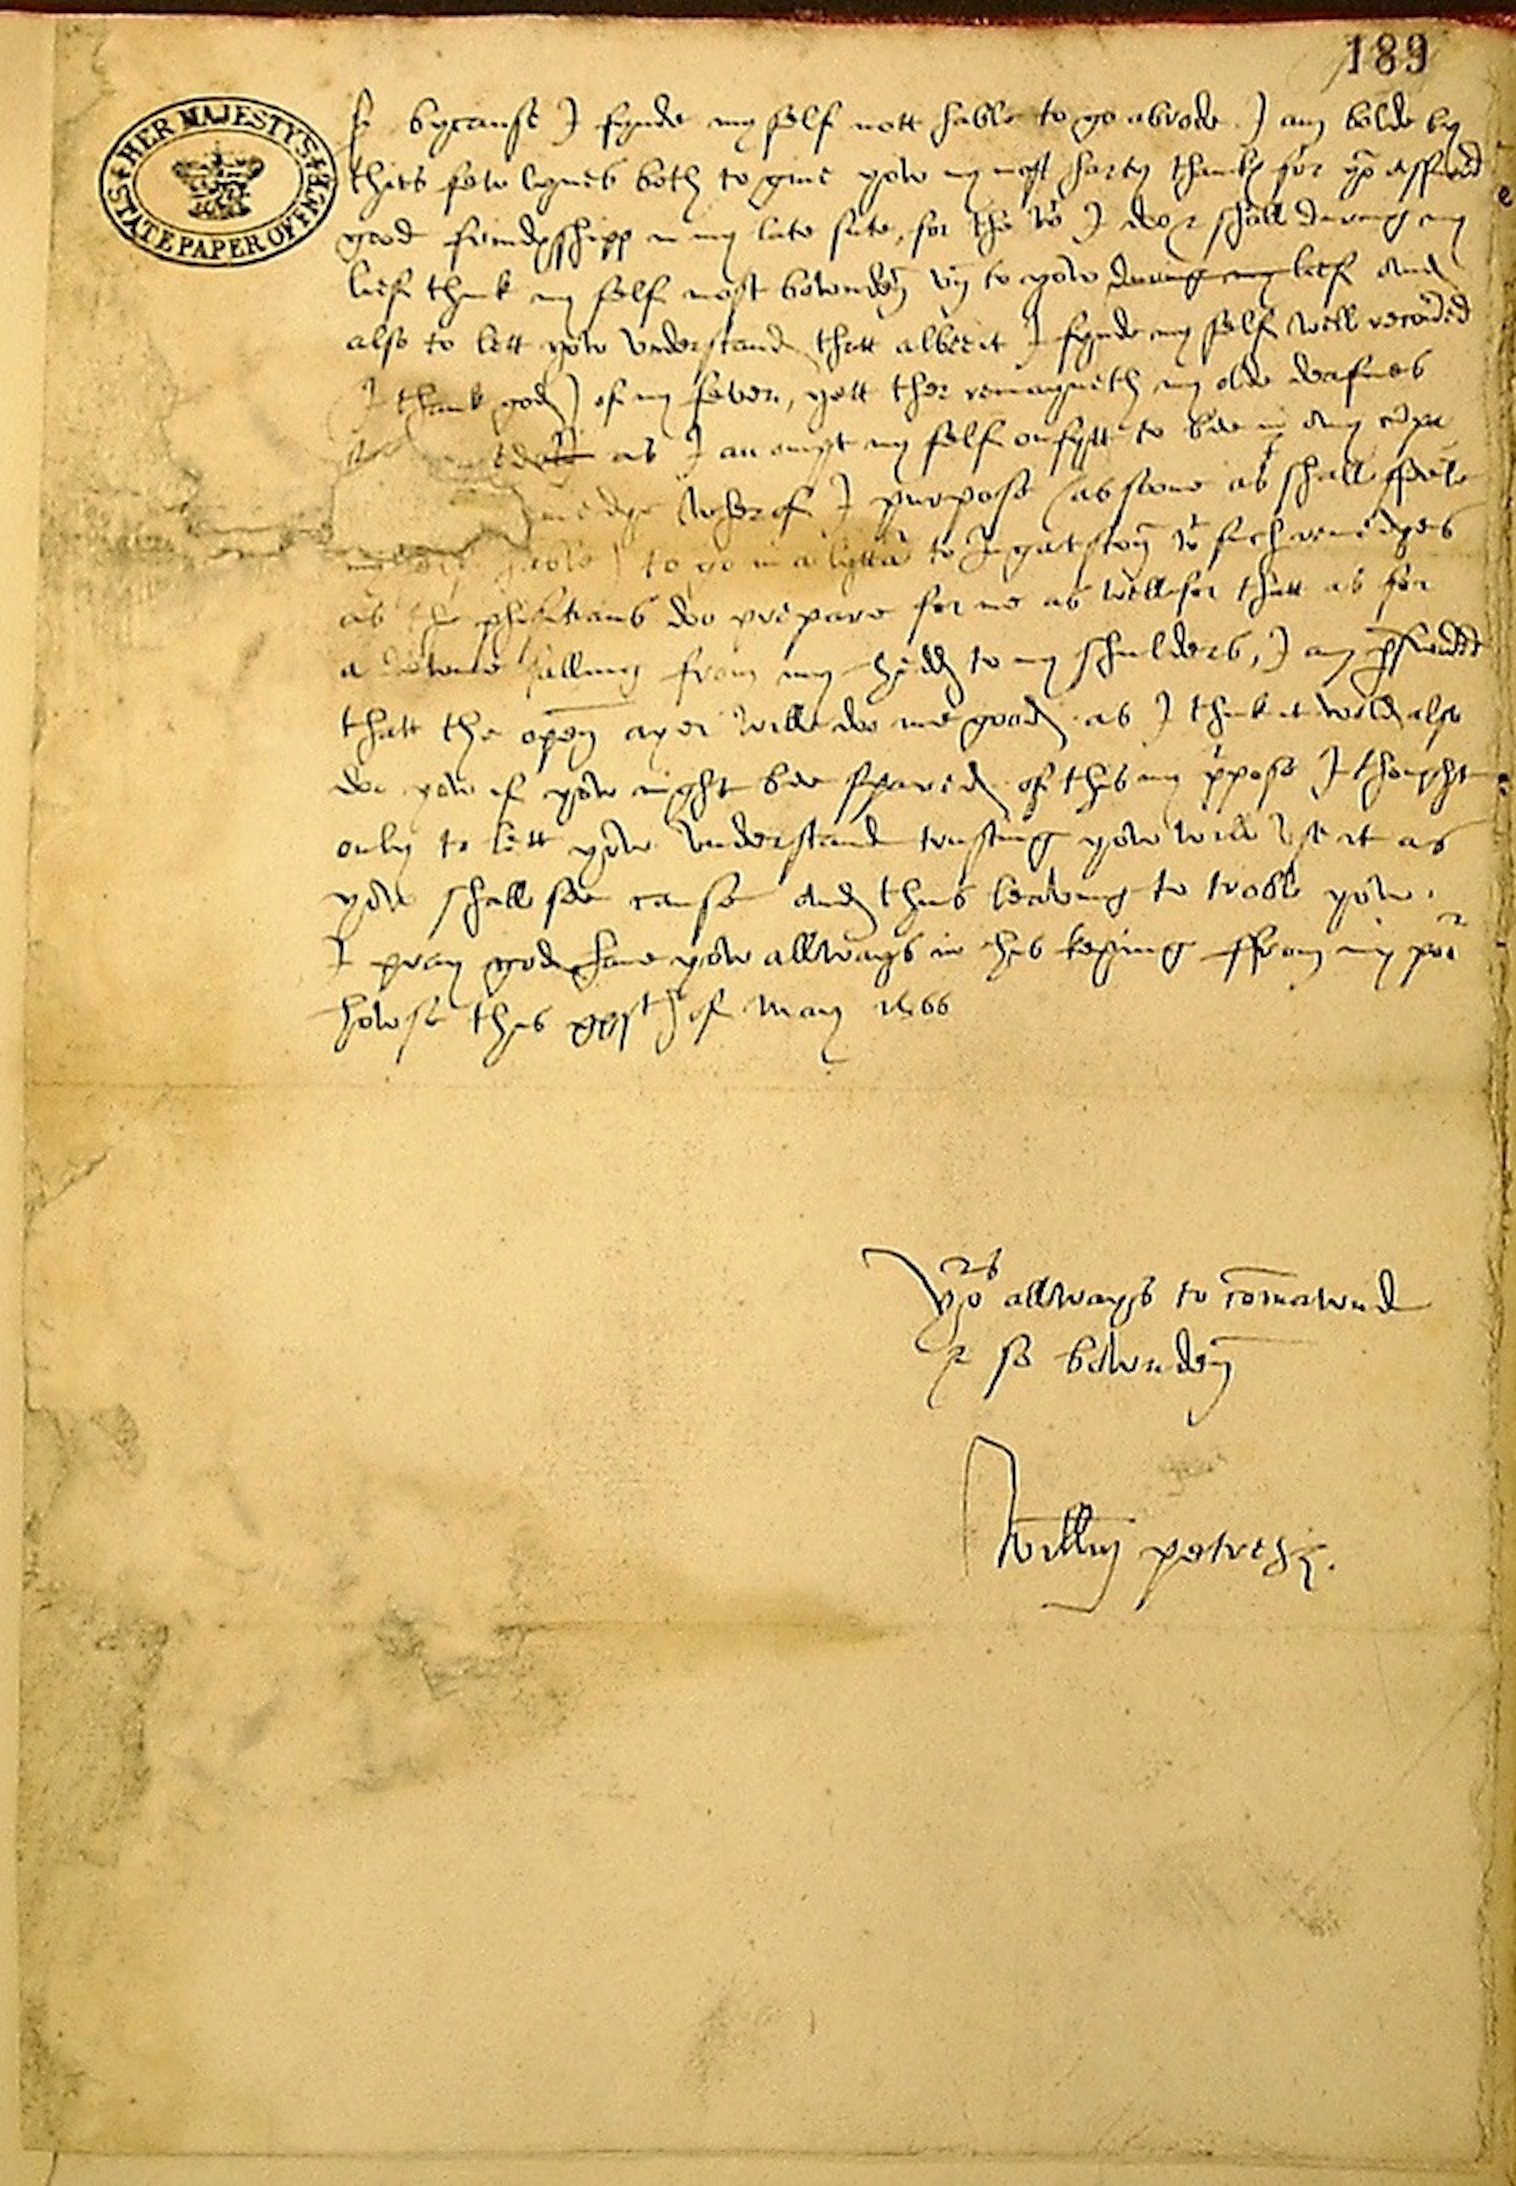 189
HER MAJESTY'S STATE PAPER OFFICE
Sr bycause I fynde my self nott hable to go abrode I am bolde by
thies few lynes both to give yow my most harty thanks for yor assured
good frendshipp in my late sute, for the wch I do & shall during my
lief think my self most bownden vn to yow during my lief And
also to lett yow understand thatt albeit I fynde my self well recovered
(I thank god) of my fever, yett ther remayneth my olde deafnes
as I accompt my self onfytt to bee in any
wherof I purpose (as sone as I shall feele
hable) to go in a lytter to Ingatston wt such remedyes
as the phisitians do prepare for me as well for thatt as for
a falling from my hedd to my shulders, I am perswaded
thatt the open ayer will do me good as I think it wold also
do yow if yow might bee spared of this my purpose I thought
only to lett yow understand trusting yow will vse it as
yow shall see cause And thus leaving to troble yow.
I pray god have yow allways in his keping ffrom my por
howse this of May 1566
Yors allways to comawnd
& so bownden
Willm petre